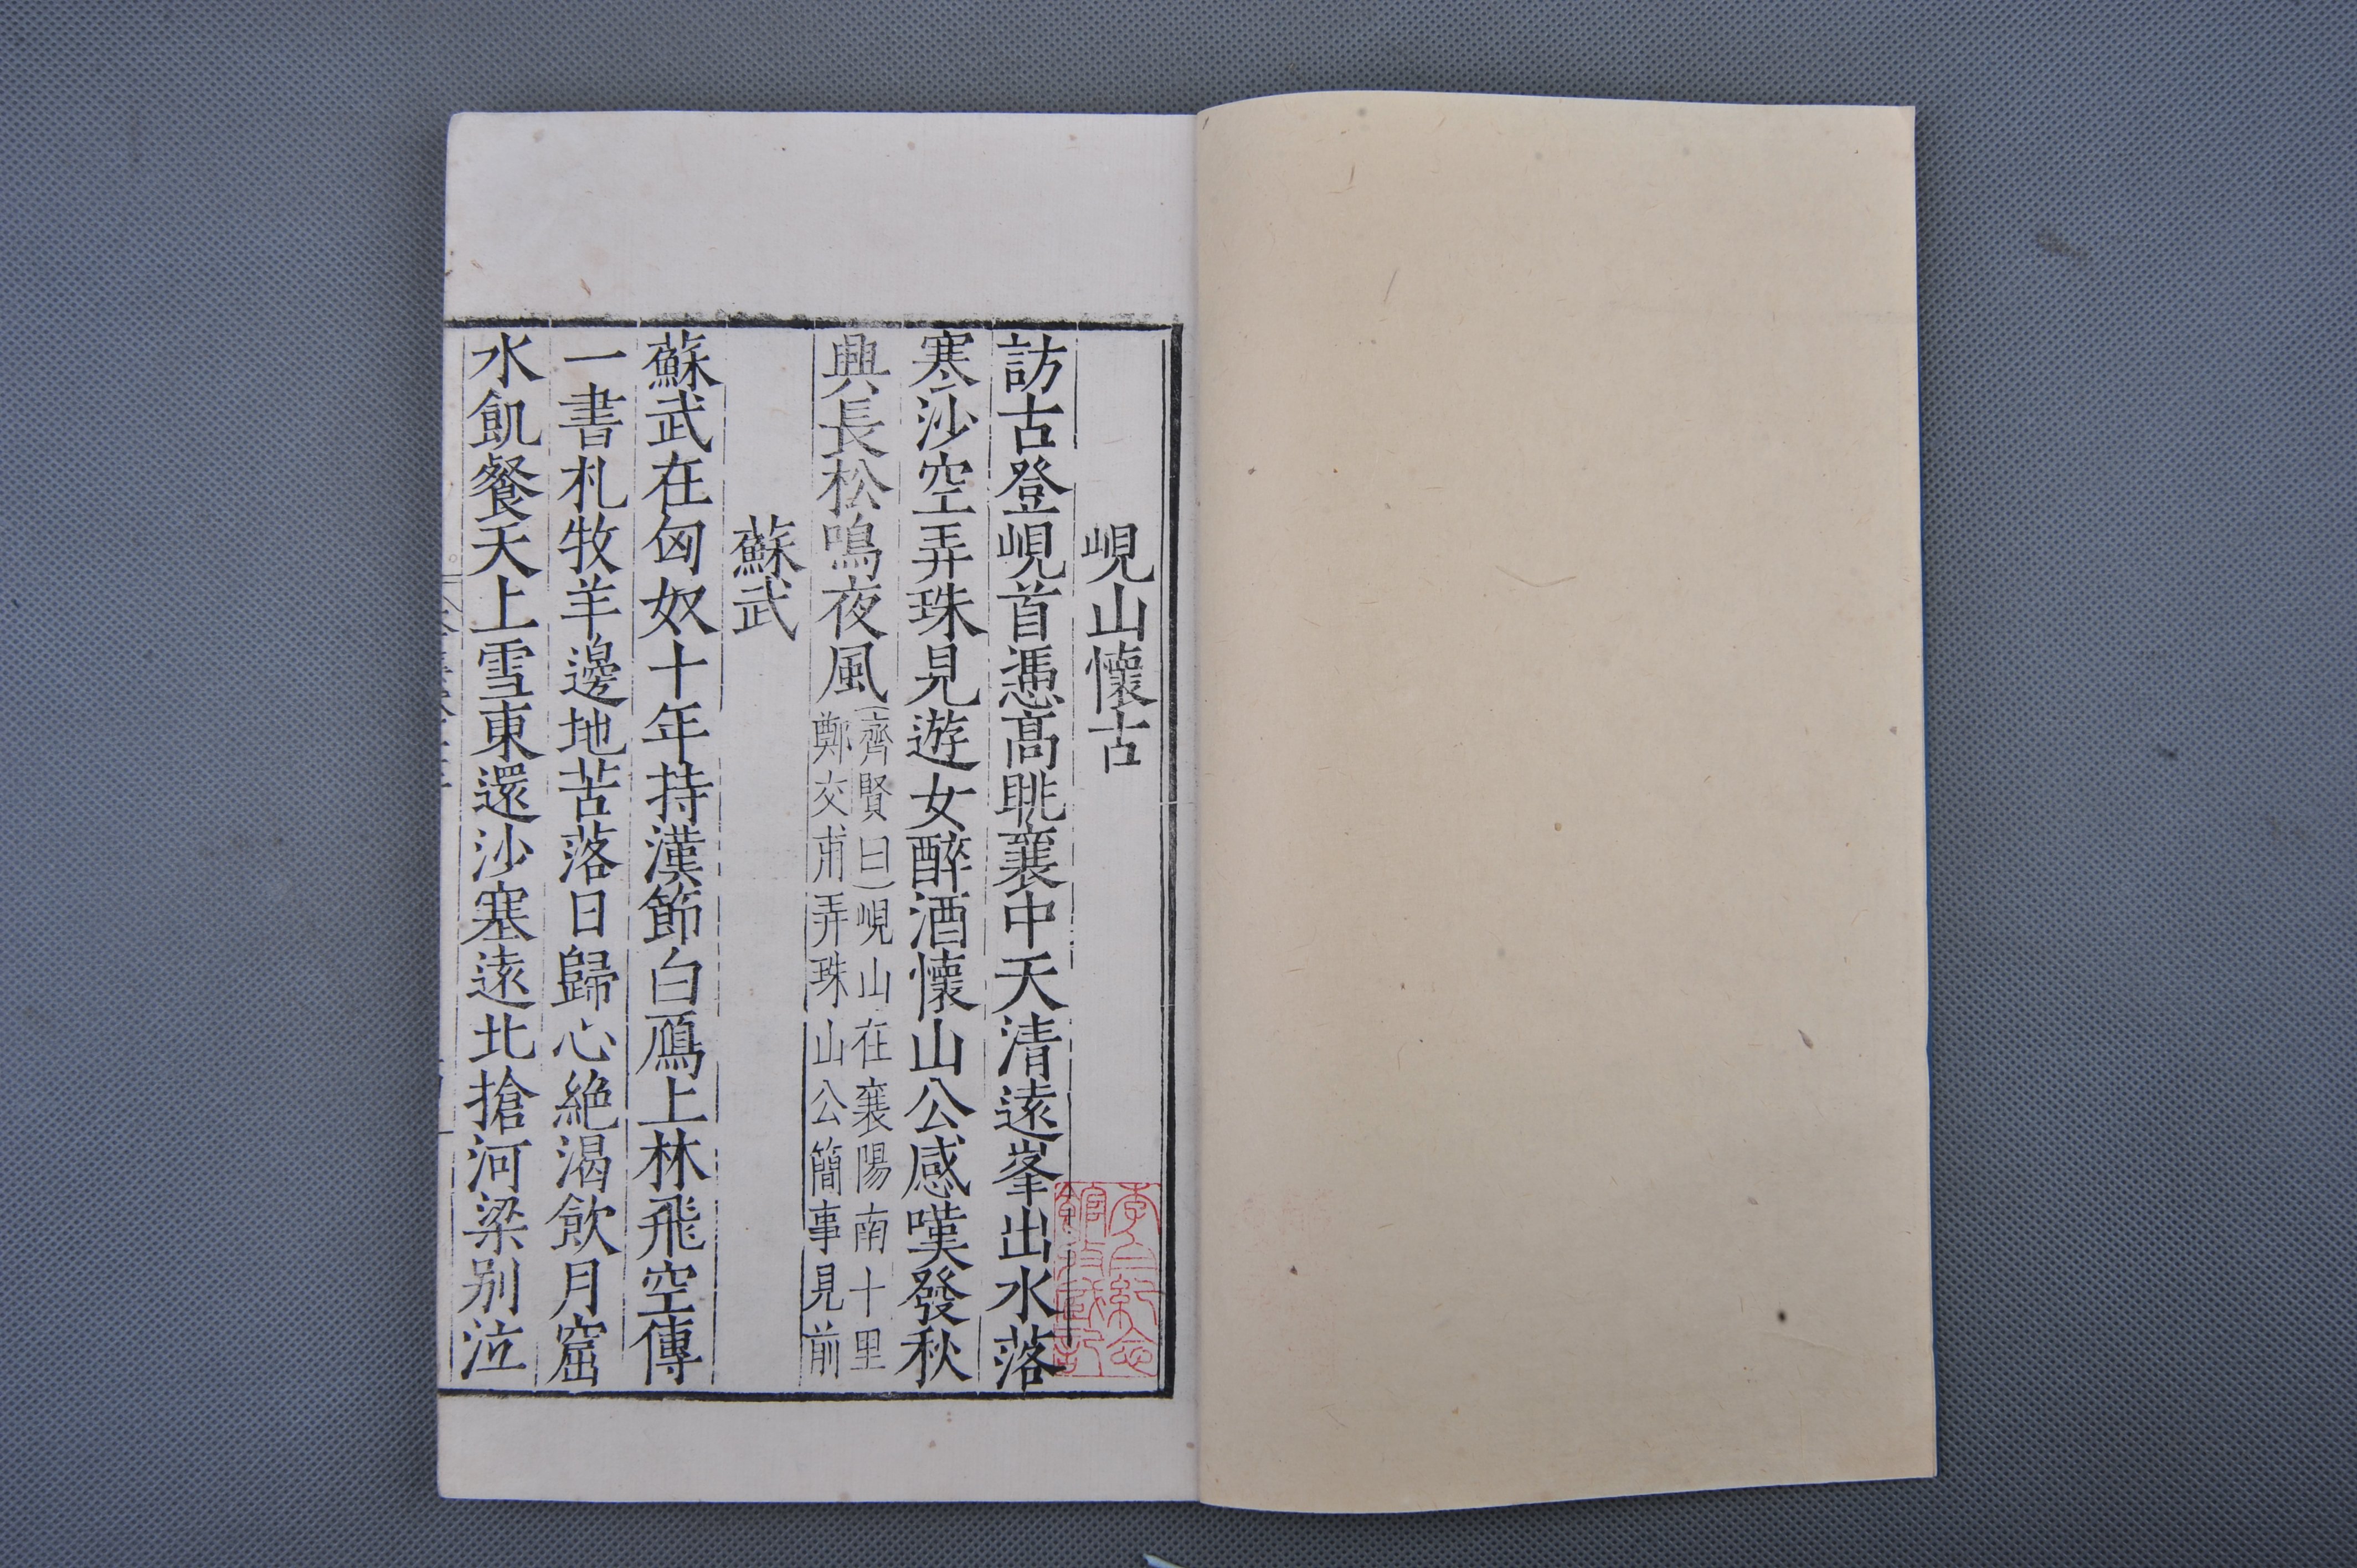 峴山懷古
訪古登峴首憑高眺襄中天清遠峯出水落
寒沙空弄珠見遊女醉酒懷山公感嘆發秋
興長松鳴夜風
(齊賢曰)峴山在襄陽南十里
鄭交甫弄珠山公簡事見前
蘇武
蘇武在匈奴十年持漢節白鴈上林飛空傳
一書札牧羊邊地苦落日歸心絶渴飲月窟
水飢餐天上雪東還沙塞遠北愴河梁別泣
李白紀念
館收藏記